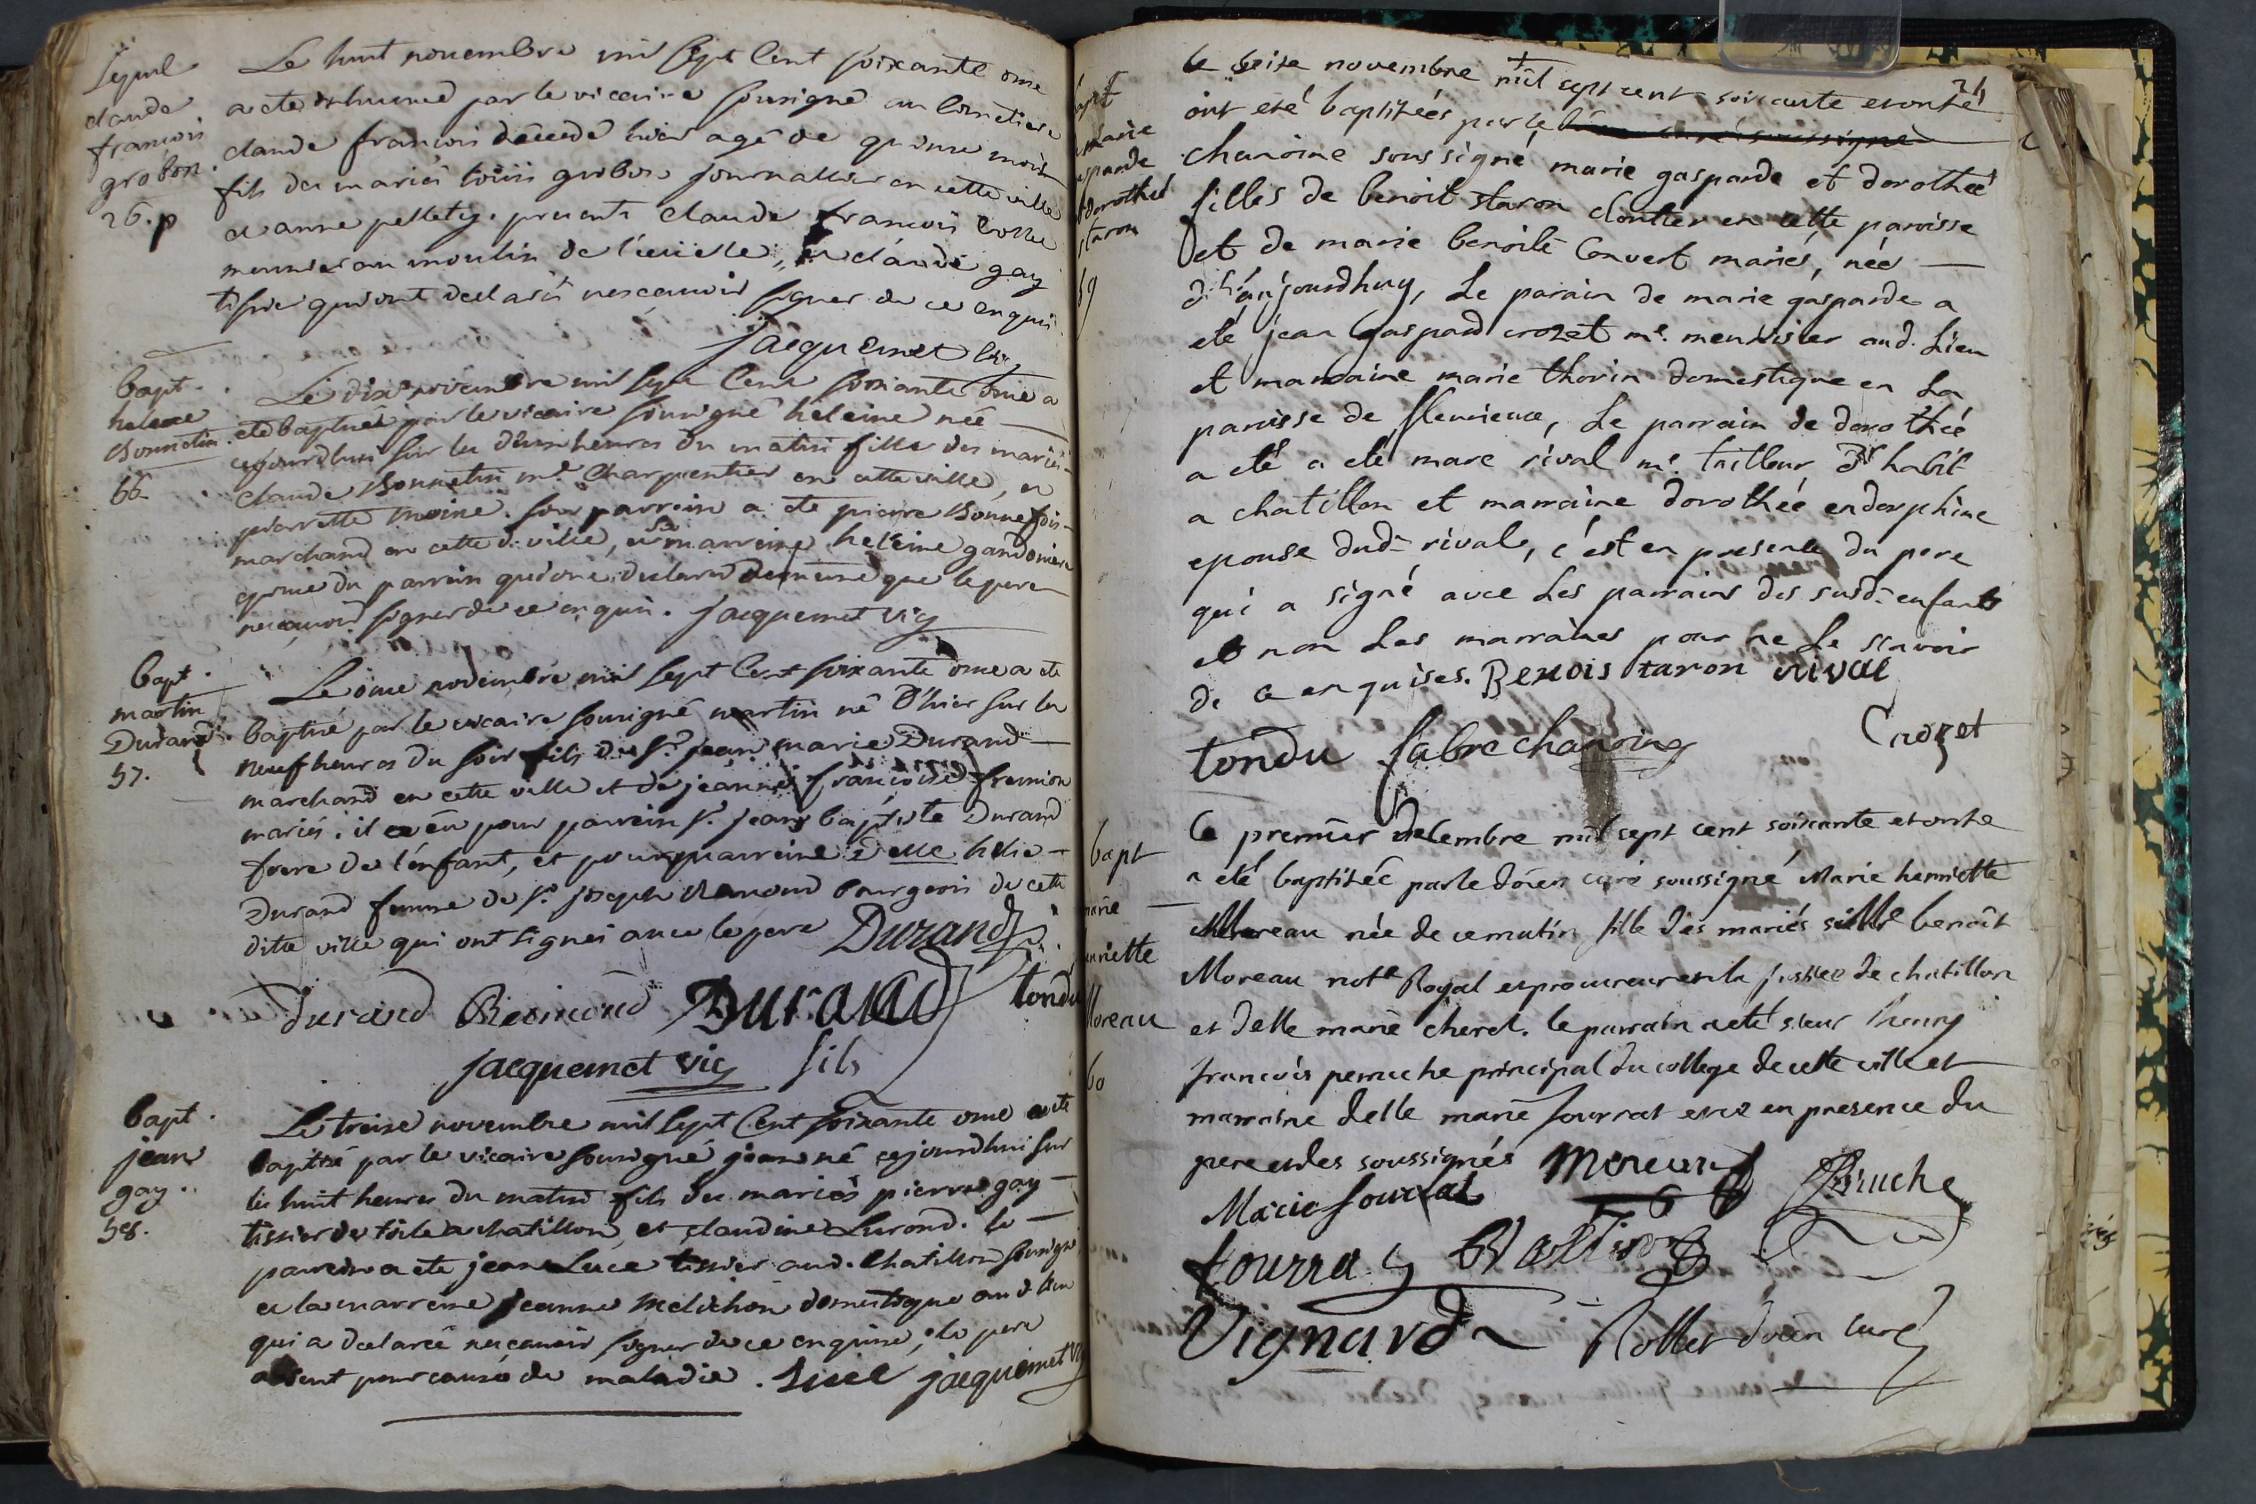 Sepul.
claude
francois
grobon.
26. p
Le huit novembre mil sept Cent soixante onze
a ete inhumé par le vicaire sousigné au Cimetiere
claude francois décedé hier agé de quinze mois
fils des mariés loüis grobon journallier en cette ville
et anne pellety. presents claude francois
meunier au moulin de et claude gay
tissier qui ont declarés ne scavoir signer de ce enquis
jacquemet vic
bapt.
heleine
Bonnetin.
56
Le dix novembre mil sept Cent soixante onze a
eté baptisée par le vicaire sousigné heleine née
cejourdhui sur les deux heures du matin fille des mariés
claude Bonnetin m.e charpentier en cette ville, et
pierrette moine. son parrein a ete pierre Bonnefois
marchand en cette d. ville, et sa marreine heleine
epouse du parrein qui ont declaré de meme que le pere
ne scavoir signer de ce enquis. jacquemet vic
bapt.
martin
Durand.
57.
Le onze novembre mil sept Cent soixante onze a ete
baptisé par le vicaire sousigné martin né D'hier sur les
neuf heures du soir fils du s.r jean marie Durand
marchand en cette ville et de jeanne francoise fremion
mariés. il a eu pour parrein s.r jean baptiste Durand
frere de l'enfant, et pour marreine Delle helie
Durand femme de s.r joseph Remond bourgeois de cette
ditte ville qui ont signés avec le pere Durand
durand Remond Durand tondu
jacquemet vic fils
bapt.
jean
gay.
58.
Le treize novembre mil sept Cent soixante onze a eté
baptisé par le vicaire sousigné jean né cejourdhui sur
les huit heures du matin fils des mariés pierre gay
tissier de toile a chatillon, et claudine Lurond. le
parrein a ete jean Luce tissier aud. Chatillon sousigné
et la marreine jeanne melichon domestique aud. lieu
qui a declaré ne scavoir signer de ce enquise, le pere
absent pour cause de maladie. Luce jacquemet vic
21
bapt
marie
gasparde
et dorothée
staron
59
le seize novembre mil sept cent soixante et onze
ont eté baptisées par le
chanoine soussigné marie gasparde et dorothée
filles de benoit staron cloutier en cette paroisse
et de marie benoite Convert mariés, née
d'aujourdhuy, Le parain de marie gasparde a
eté jean gaspard crozet m.e meunisier aud. Lieu
et marraine marie thorin domestique en La
paroisse de fleurieux, Le parrain de dorothée
a eté a eté marc rival m.e tailleur d'habit
a chatillon et marraine dorothée endorphine
epouse dud. rival, c'est en presence du pere
qui a signé avec Les parrains des susd. enfants
et non Les marraines pour ne Le scavoir
de ce enquises. Benois staron rival
tondu fabre chanoine Crozet
bapt
marie
henriette
Moreau
60
le premier decembre mil sept cent soixante et onze
a eté baptisée par le doien curé soussigné Marie henriette
Moreau née de ce matin fille des mariés sieur benoît
Moreau not.e Royal et procureur en la justice de chatillon
et delle marie cheret. le parrain a eté sieur henry
francois perruche principal du college de cette ville et
marraine delle marie fourrat et ce en presence du
pere et des soussignés moreau Peruche
Marie fourrat
fourra
Vignard Rollet doien curé